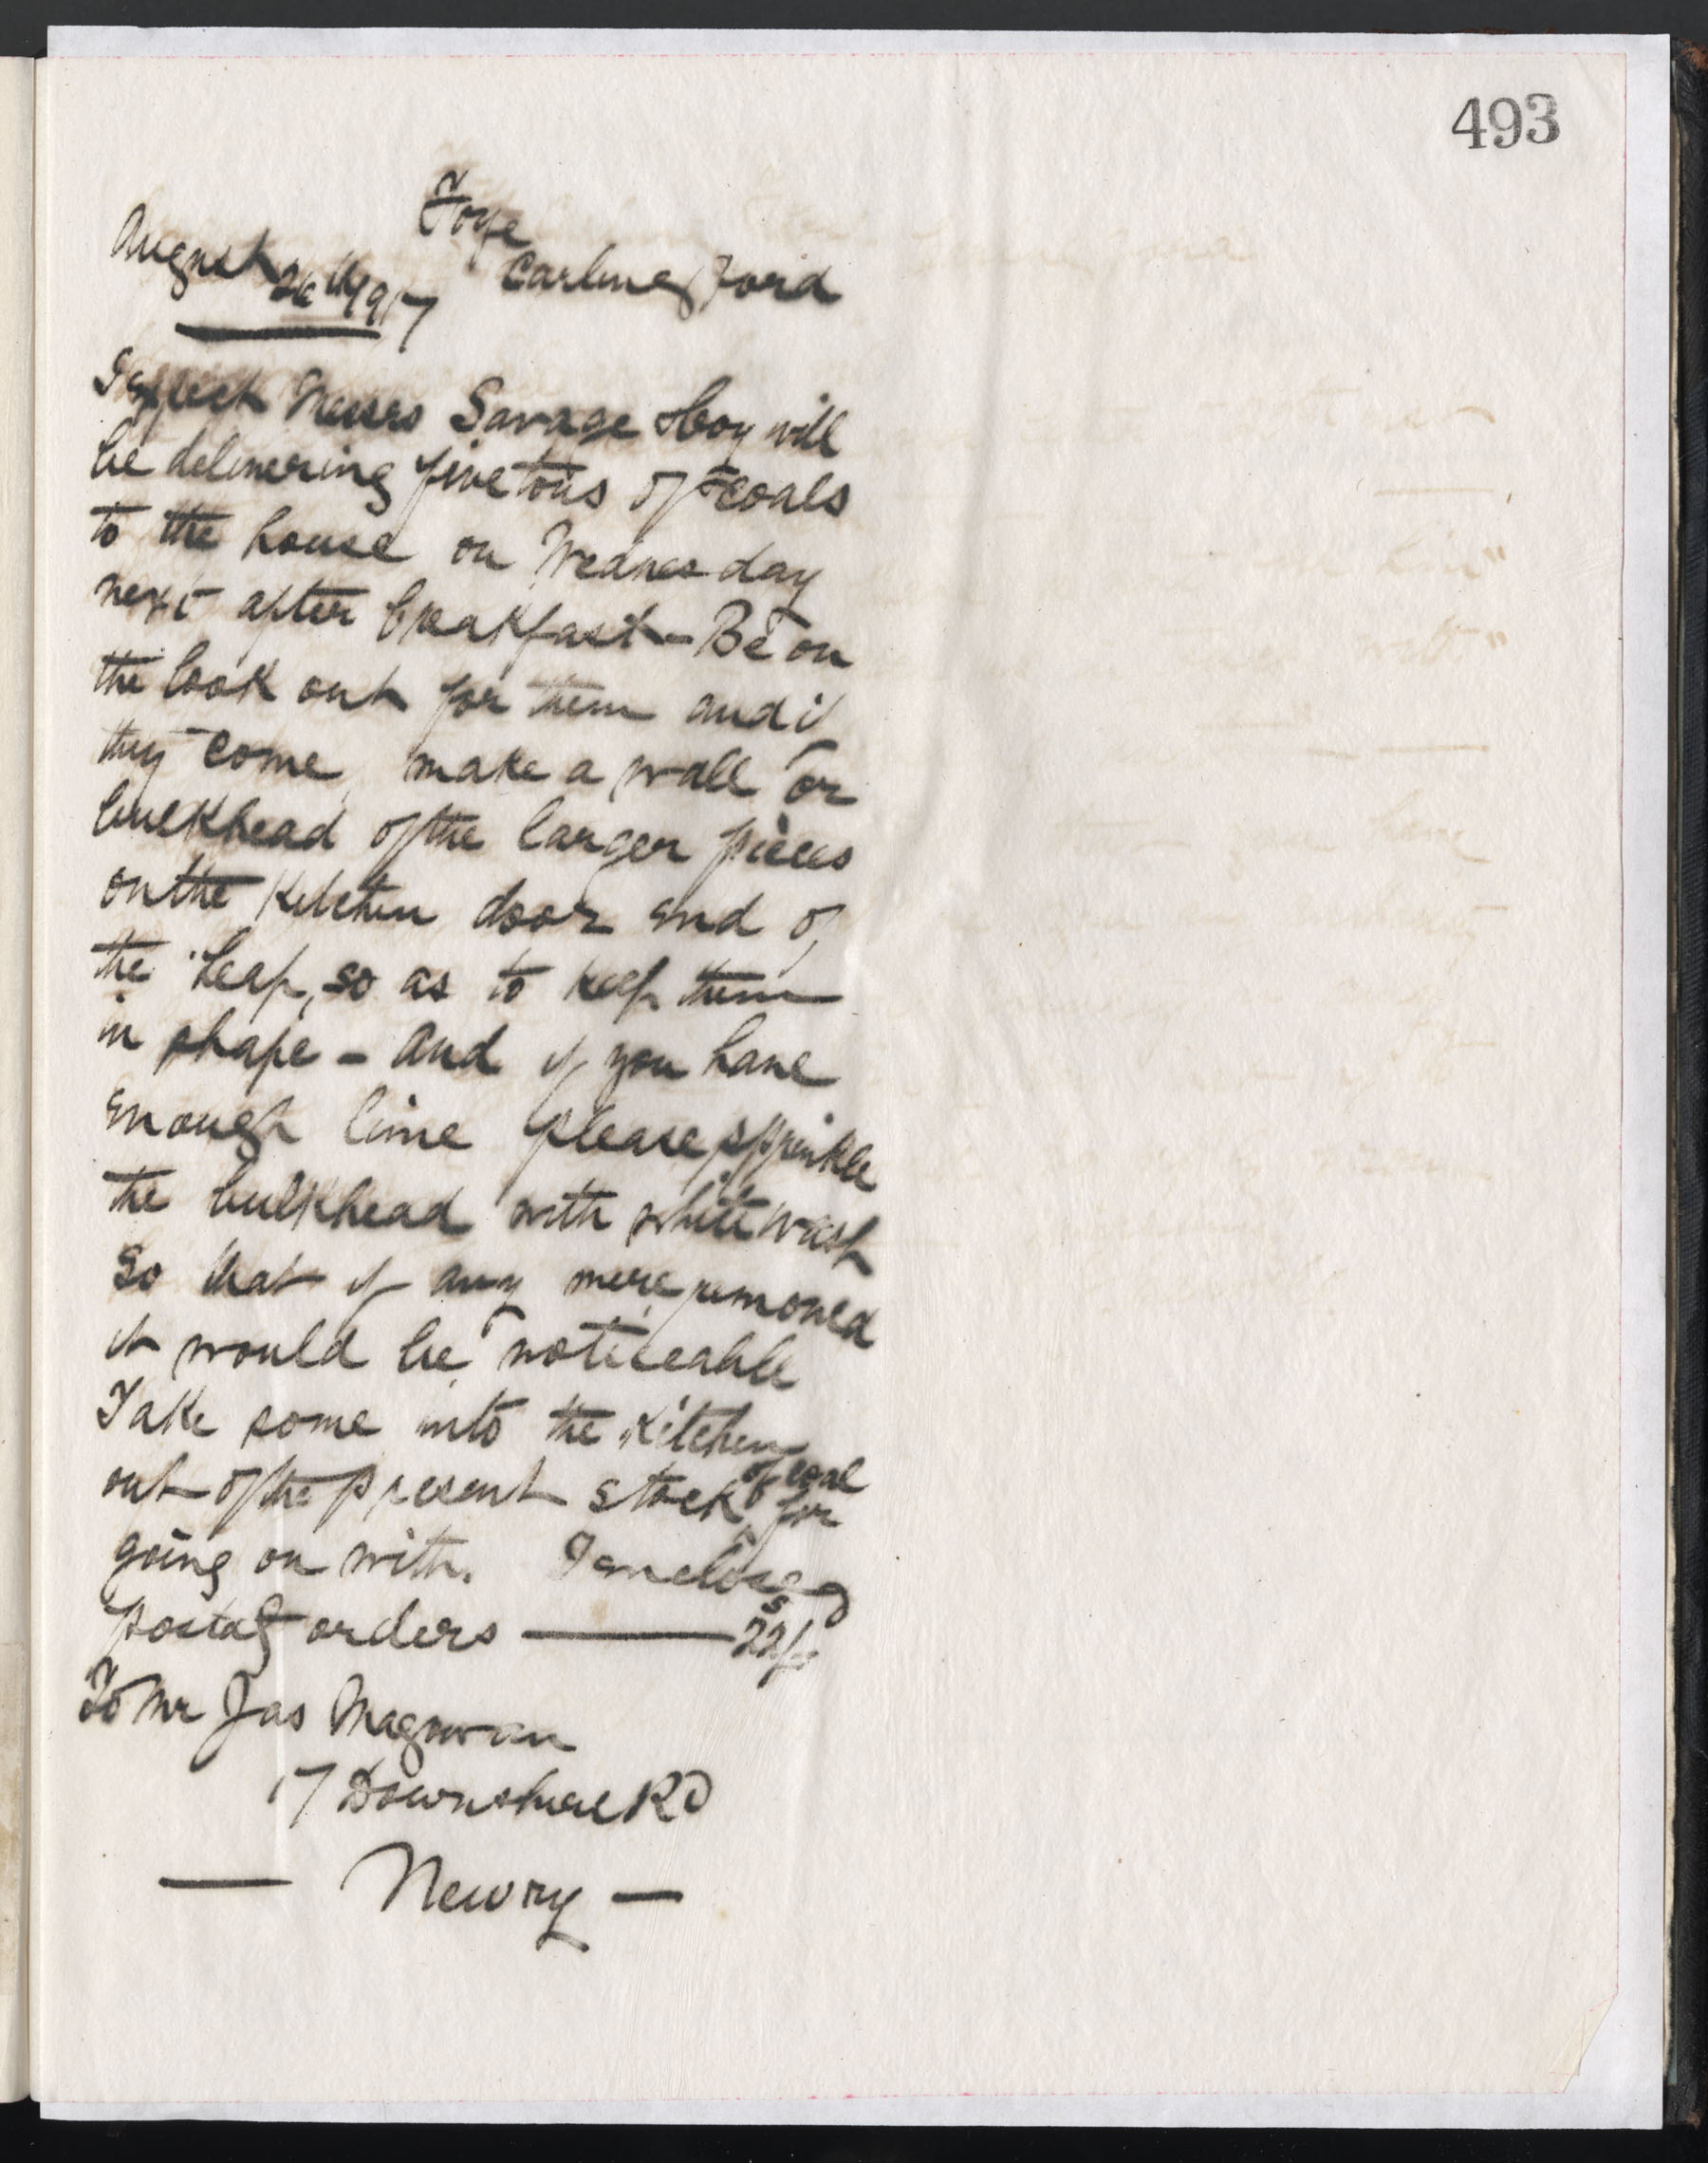 493
Foye
Carlingford
August 26th 1917
I expect Messrs Savage & Coy will
be delivering five tons of coals
to the house on Wednesday
next after breakfast – Be on
the look out for them and if
they come, make a wall or
bulkhead of the larger pieces
on the Kitchen door end of
the heap, so as to keep them
in shape – and if you have
enough lime please sprinkle
the bulkhead with whitewash
so that if any were removed
it would be noticeable
Take some into the Kitchen
out of the present stock of coal for
going on with. I enclose
postal orders — 22/s
To Mr Jas Magowan
17 Downshire Rd
— Newry —